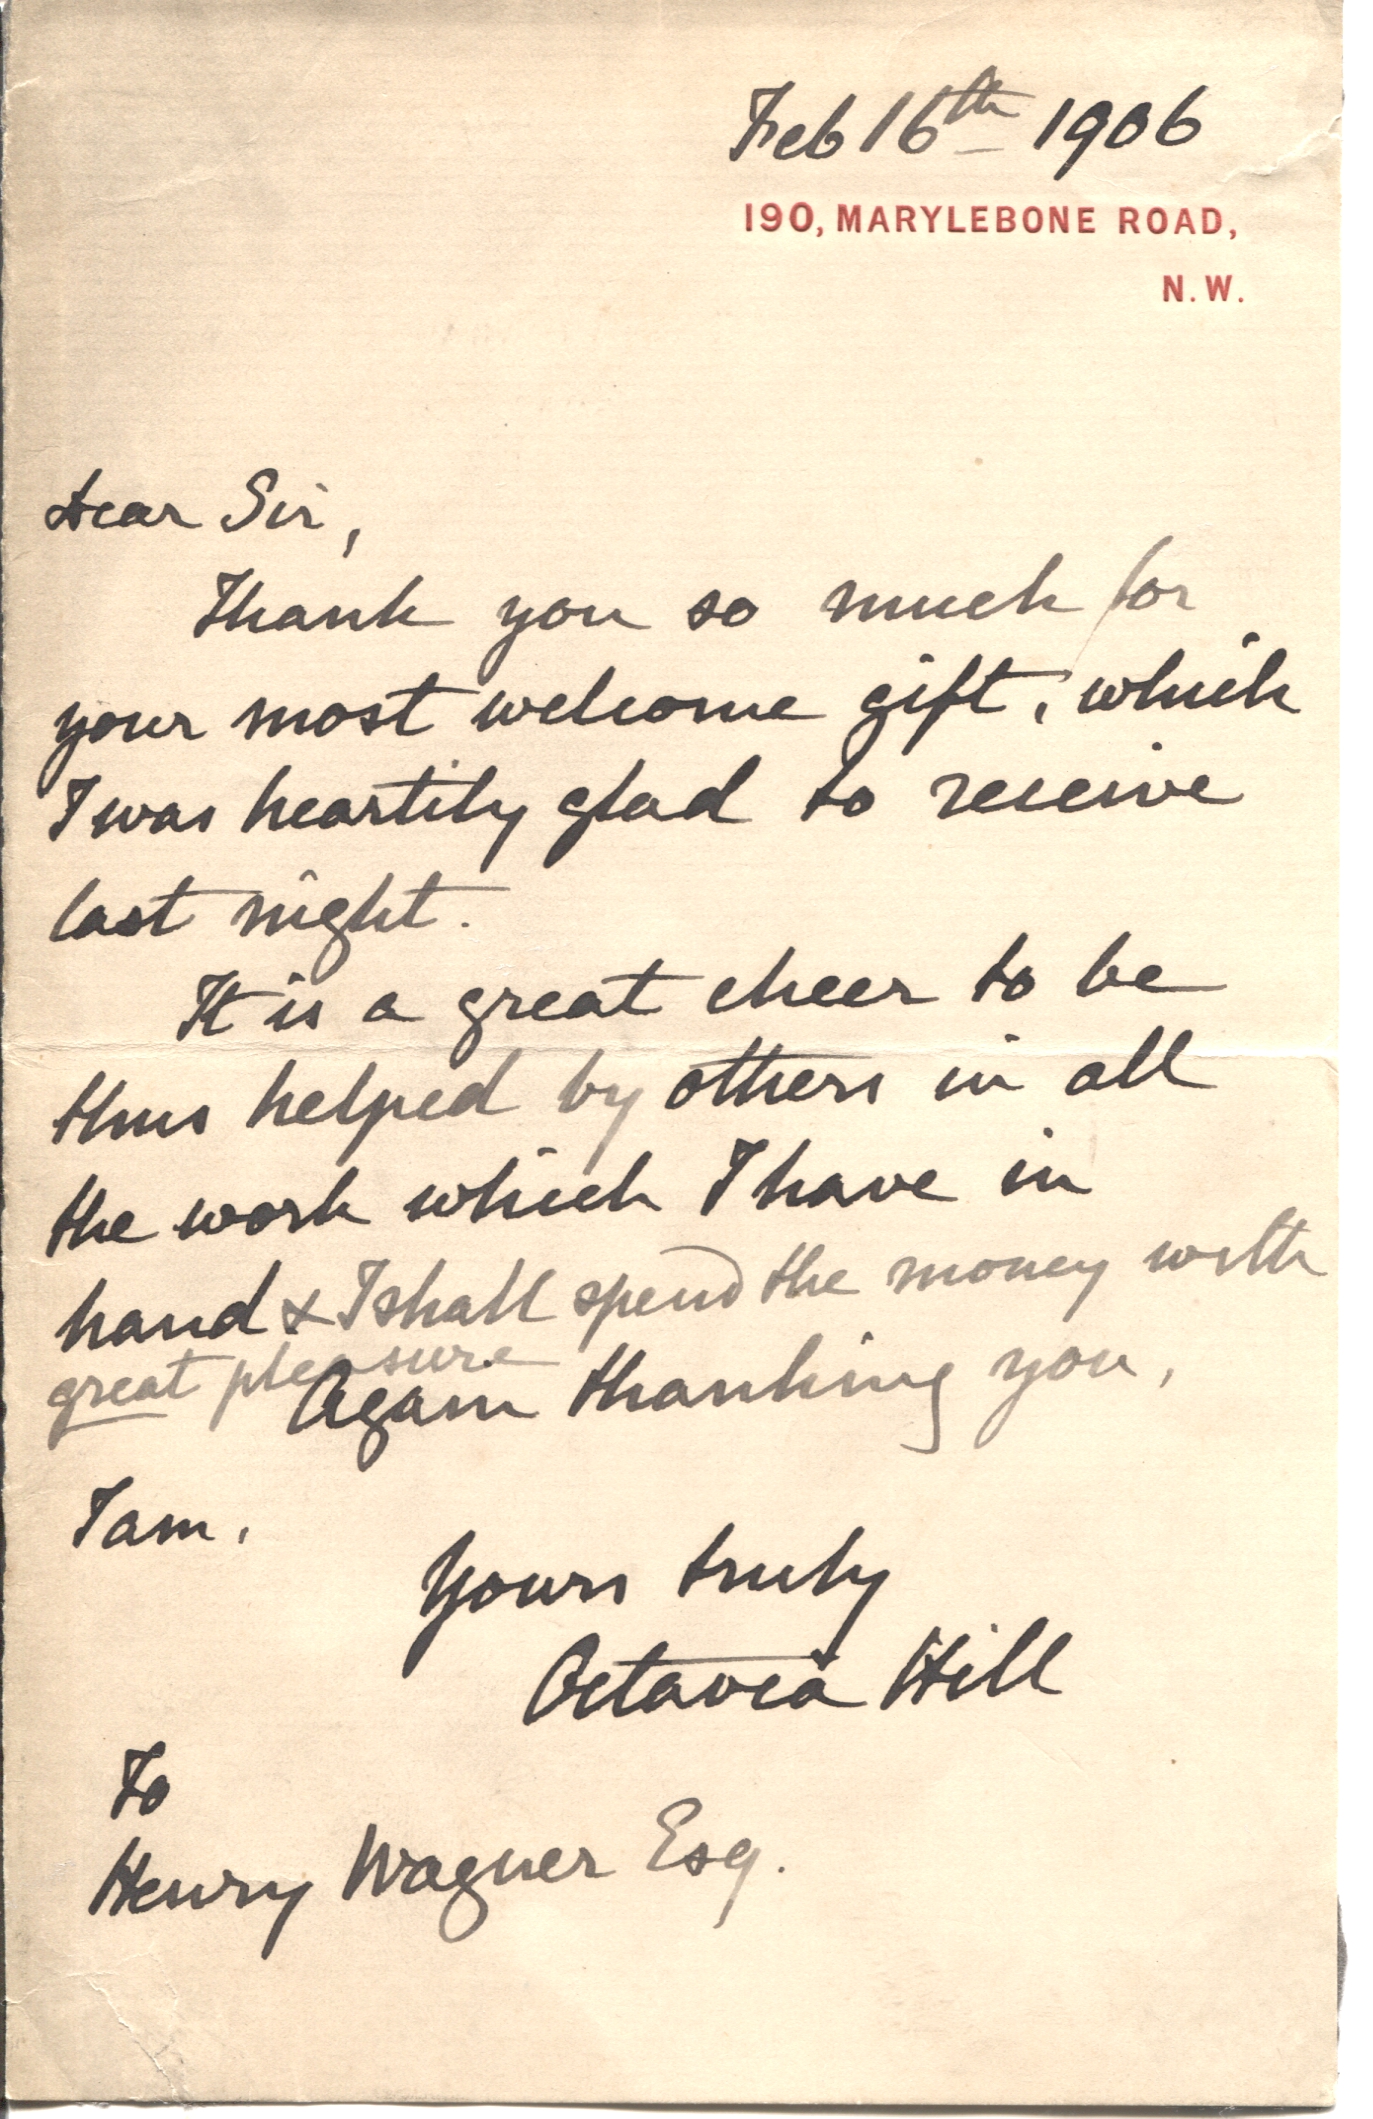 Feb 16th 1906
190, MARYLEBONE ROAD,
N.W.
Dear Sir,
Thank you so much for
your most welcome gift, which
I was heartily glad to receive
last night.
It is a great cheer to be
thus helped by others in all
the work which I have in
hand & I shall spend the money with
great pleasure
Again thanking you,
I am,
Yours truly
Octavia Hill
To
Henry Wagner Esq.